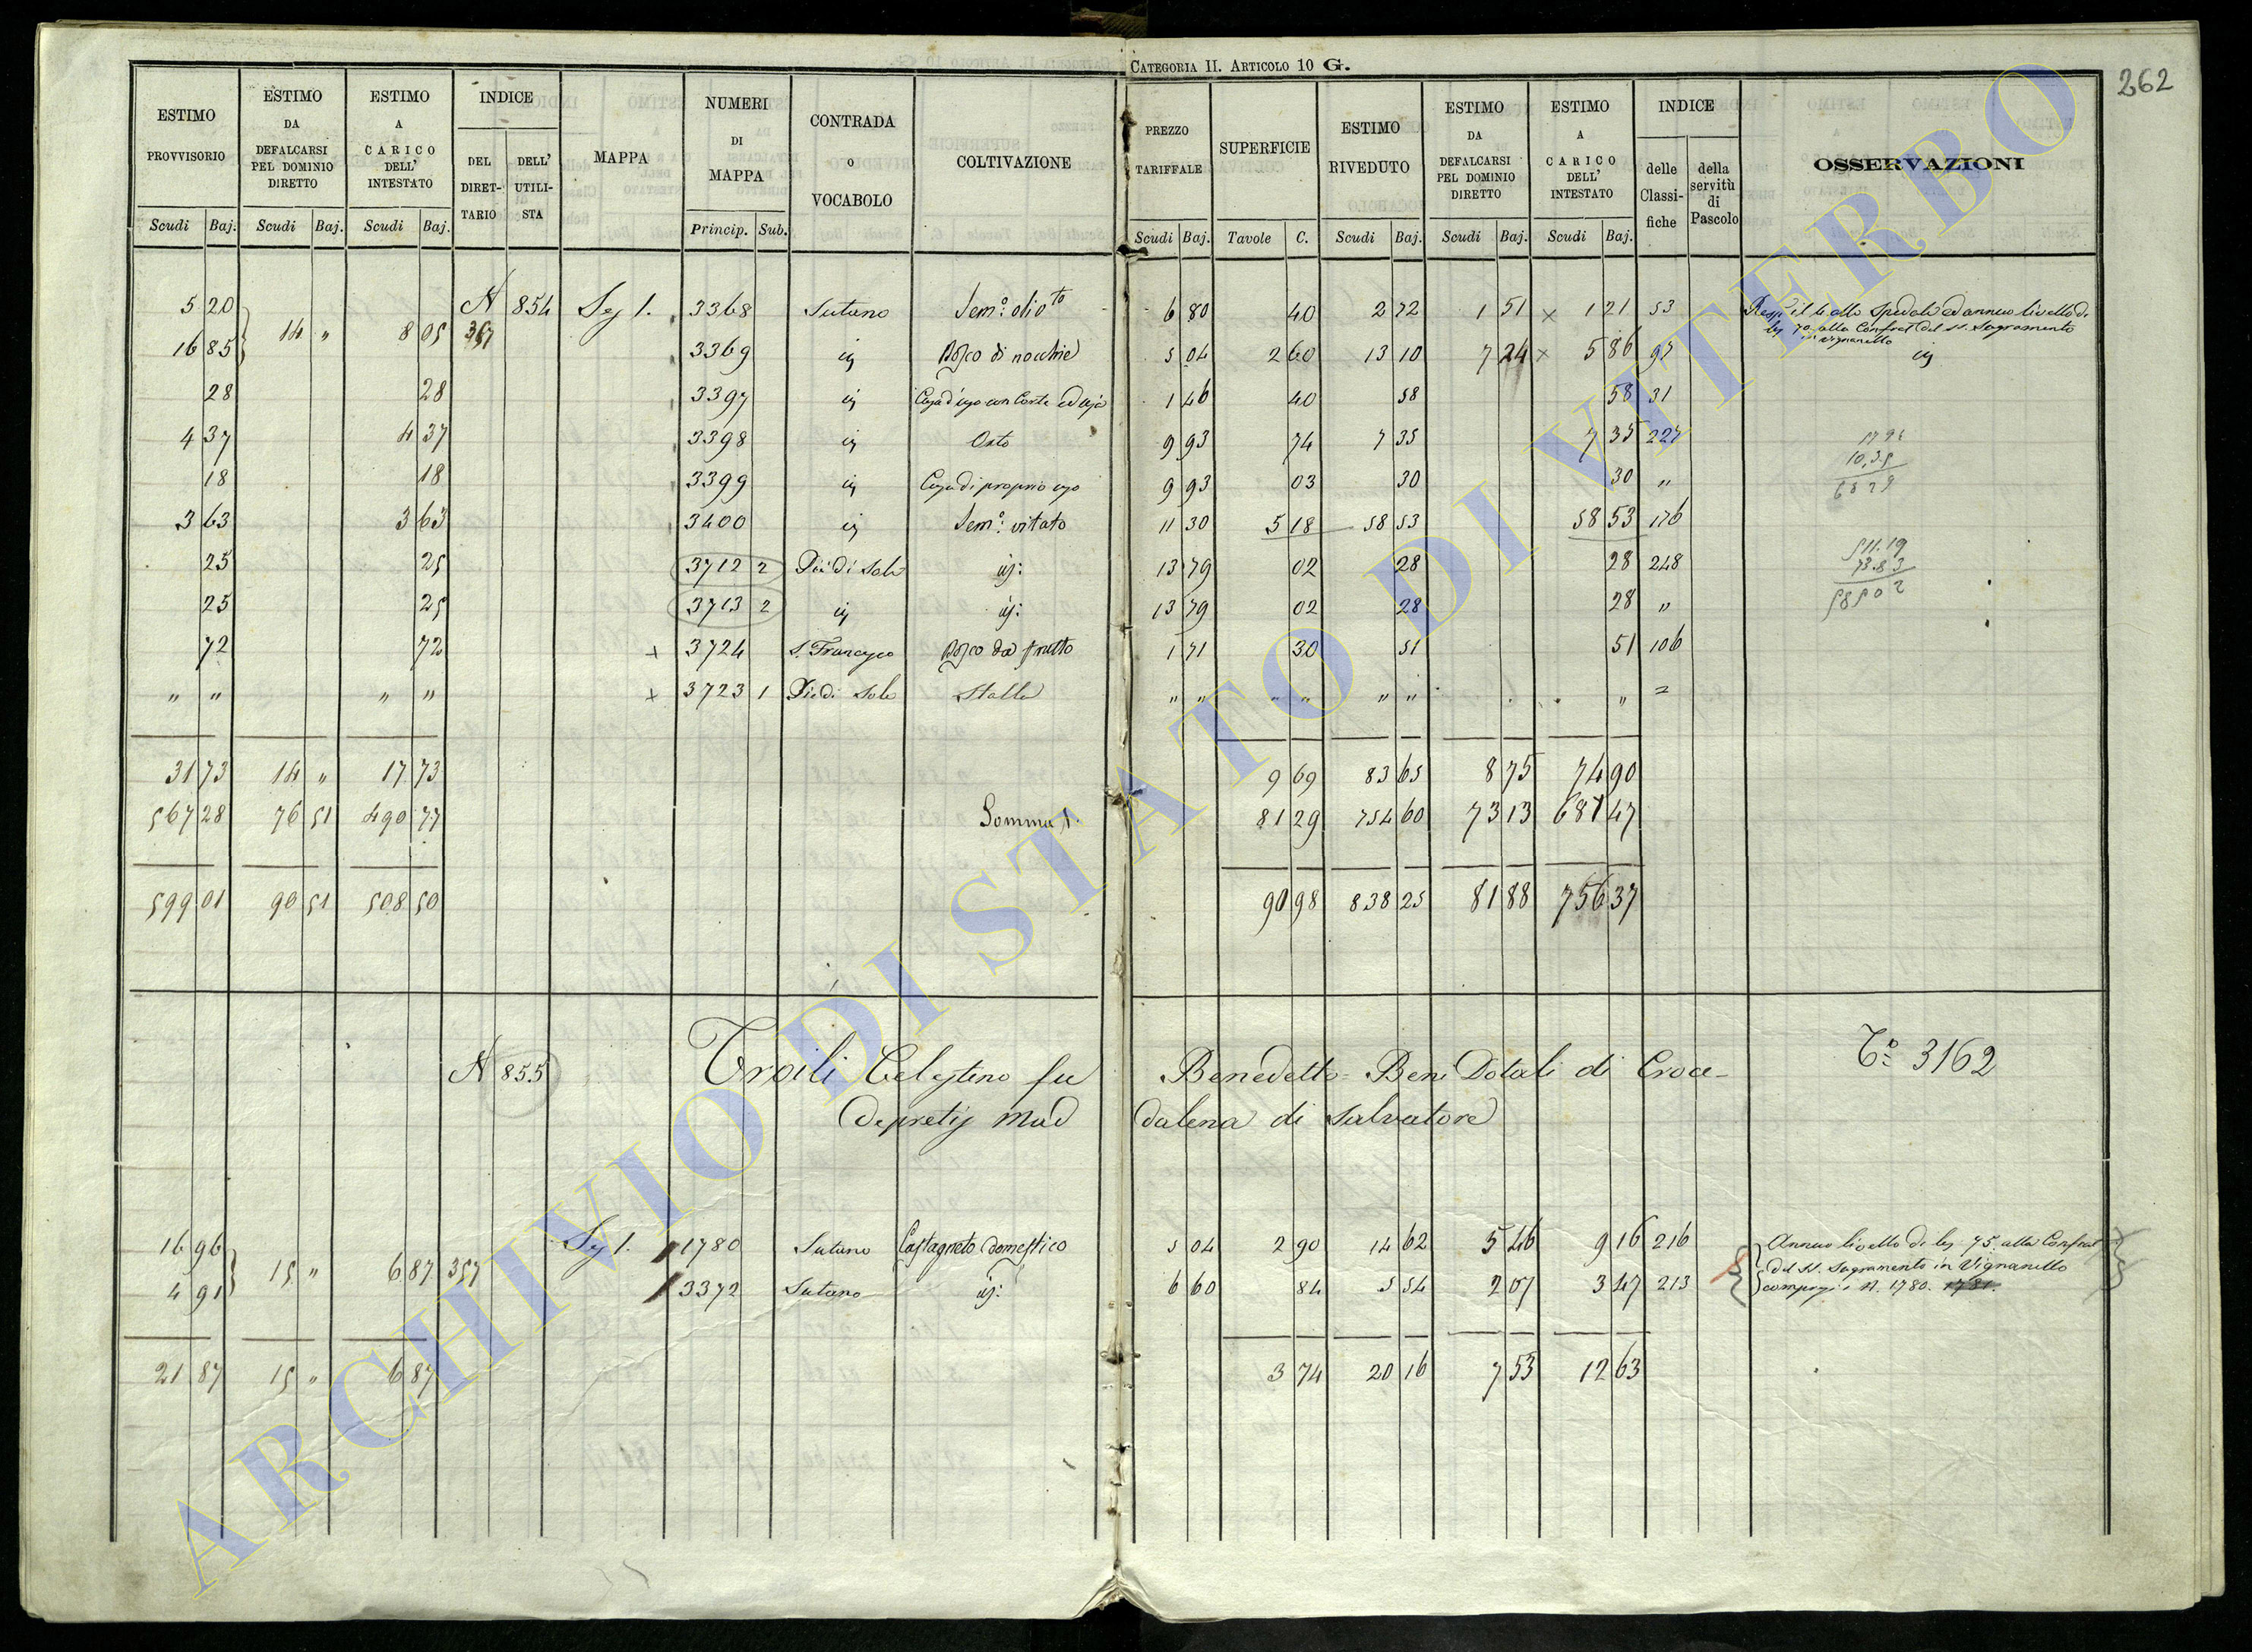 CATEGORIA II. ARTICOLO 10 G.
262
ESTIMO PROVVISORIO | ESTIMO DA DEFALCARSI PEL DOMINIO DIRETTO | ESTIMO A CARICO DELL' INTESTATO | INDICE DEL DIRETTARIO | DELL' UTILISTA | MAPPA | NUMERI DI MAPPA | CONTRADA o VOCABOLO | COLTIVAZIONE | PREZZO TARIFFALE | SUPERFICIE | ESTIMO RIVEDUTO | ESTIMO DA DEFALCARSI PEL DOMINIO DIRETTO | ESTIMO A CARICO DELL' INTESTATO | INDICE delle Classifiche | della servitù di Pascolo | OSSERVAZIONI
Scudi Baj. | Scudi Baj. | Scudi Baj. | Princip. Sub. | Scudi Baj. | Tavole C. | Scudi Baj. | Scudi Baj. | Scudi Baj.
5 20 | 14 " | 8 05 | N 357 | 854 | Sez 1. | 3368 | Sutano | Sem.º olio.to | 6 80 | 40 | 2 72 | 1 51 × | 1 21 | 53 | il alla Spedale ed annuo livello di
70 alla Confrat del SS. Sagramento
in Vignanello
16 85 | 3369 | ij | Bosco di nocchie | 5 04 | 2 60 | 13 10 | 7 24 × | 5 86 | 97 | ij
28 | 28 | 3397 | ij | Casa d'uso con Corte ed aja | 1 46 | 40 | 58 | 58 | 31
4 37 | 4 37 | 3398 | ij | Orto | 9 93 | 74 | 7 35 | 7 35 | 227
18 | 18 | 3399 | ij | Casa di proprio uso | 9 93 | 03 | 30 | 30 | "
3 63 | 3 63 | 3400 | ij | Sem.º vitato | 11 30 | 5 18 | 58 53 | 58 53 | 176
25 | 25 | 3712 2 | Piè di Sole | ij: | 13 79 | 02 | 28 | 28 | 248
25 | 25 | 3713 2 | ij | ij: | 13 79 | 02 | 28 | 28 | "
72 | 72 | × | 3724 | S. Francesco | Bosco da frutto | 1 71 | 30 | 51 | 51 | 106
" " | " " | × | 3723 1 | Piè di Sole | Stalla | " " | " " | " " | " | =
31 73 | 14 " | 17 73 | 9 69 | 83 65 | 8 75 | 74 90
567 28 | 76 51 | 490 77 | Somma | 81 29 | 754 60 | 73 13 | 681 47
599 01 | 90 51 | 508 50 | 90 98 | 838 25 | 81 88 | 756 37
10.35
511.19
73.83
585 02
N 855 | Troili Celestino fu Benedetto = Beni Dotali di Croce-
Depretis Maddalena di Salvatore
T.º 3162
16 96 | 15 " | 6 87 | 357 | Sez 1. | 1780 | Sutano | Castagneto domestico | 5 04 | 2 90 | 14 62 | 5 46 | 9 16 | 216 | Annuo livello di 75. alla Confrat
del SS. Sagramento in Vignanello
4 91 | 3372 | Sutano | ij: | 6 60 | 84 | 5 54 | 2 07 | 3 47 | 213 | N. 1780. 1781.
21 87 | 15 " | 6 87 | 3 74 | 20 16 | 7 53 | 12 63
ARCHIVIO DI STATO DI VITERBO